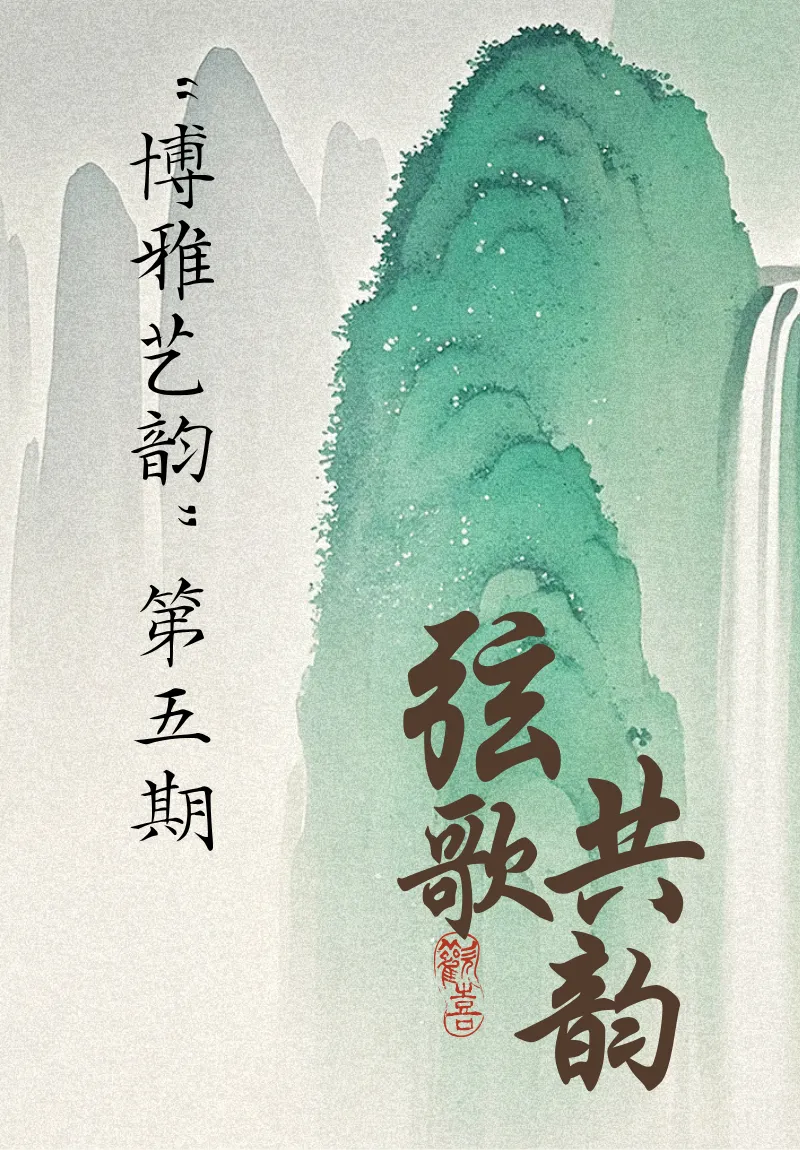 “博雅艺韵”第五期
弦歌
共韵
歡喜